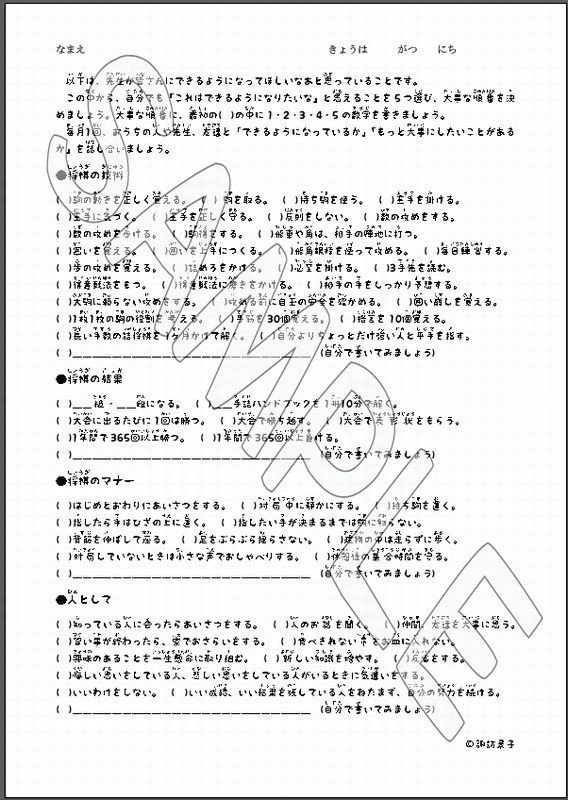 なまえ　　　きょうは　　がつ　　にち
以下は、先生が皆さんにできるようになってほしいなあと思っていることです。
この中から、自分でも「これはできるようになりたいな」と思えることを5つ選び、大事な順番を決
めましょう。大事な順番に、最初の( )の中に1・2・3・4・5の数字を書きましょう。
毎月1回、おうちの人や先生、友達と「できるようになっているか」「もっと大事にしたいことがある
か」を話し合いましょう。
●将棋の技術
( )駒の動きを正しく覚える。 ( )駒を取る。 ( )持ち駒を使う。 ( )王手を掛ける。
( )王手に気づく。 ( )王手を正しく守る。 ( )反則をしない。 ( )数の攻めをする。
( )数の攻めを受ける。 ( )駒得をする。 ( )飛車や角は、相手の陣地に打つ。
( )囲いを覚える。 ( )囲いを上手につくる。 ( )飛角銀桂を使って攻める。 ( )毎日練習する。
( )歩の攻めを覚える。 ( )詰めろをかける。 ( )必至を掛ける。 ( )3手先を読む。
( )得意戦法をもつ。 ( )得意戦法に磨きをかける。 ( )相手の手をしっかり予想する。
( )大駒に頼らない攻めをする。 ( )攻める前に自玉の安全を確かめる。 ( )囲い崩しを覚える。
( )1枚1枚の駒の役割を考える。 ( )手筋を30個覚える。 ( )格言を10個覚える。
( )長い手数の詰将棋を1ヶ月かけて解く。 ( )自分よりちょっとだけ強い人と平手を指す。
( )＿＿＿＿＿＿＿＿＿＿＿＿＿＿＿＿ (自分で書いてみましょう)
●将棋の結果
( )＿＿級・＿＿段になる。 ( )＿＿手詰ハンドブックを1冊10分で解く。
( )大会に出るたびに1回は勝つ。 ( )大会で勝ち越す。 ( )大会で表彰状をもらう。
( )1年間で365回以上勝つ。 ( )1年間で365回以上負ける。
( )＿＿＿＿＿＿＿＿＿＿＿＿＿＿＿＿ (自分で書いてみましょう)
●将棋のマナー
( )はじめとおわりにあいさつをする。 ( )対局中に静かにする。 ( )持ち駒を置く。
( )指したら手はひざの上に置く。 ( )指したい手が決まるまでは駒に触らない。
( )背筋を伸ばして座る。 ( )足をぶらぶら揺らさない。 ( )建物の中は走らずに歩く。
( )対局していないときは小さな声でおしゃべりする。 ( )休憩後の集合時間を守る。
( )＿＿＿＿＿＿＿＿＿＿＿＿＿＿＿＿ (自分で書いてみましょう)
●人として
( )知っている人に会ったらあいさつをする。 ( )人のお話を聞く。 ( )仲間、友達を大事に思う。
( )習い事が終わったら、家でおさらいをする。 ( )食べきれない量をお皿に入れない。
( )興味のあることを一生懸命に取り組む。 ( )新しい知識を増やす。 ( )反省をする。
( )悔しい思いをしている人、悲しい思いをしている人がいるときに気遣いをする。
( )いいわけをしない。 ( )いい成績、いい結果を残している人をねたまず、自分の努力を続ける。
( )＿＿＿＿＿＿＿＿＿＿＿＿＿＿＿＿ (自分で書いてみましょう)
©諏訪景子
SAMPLE